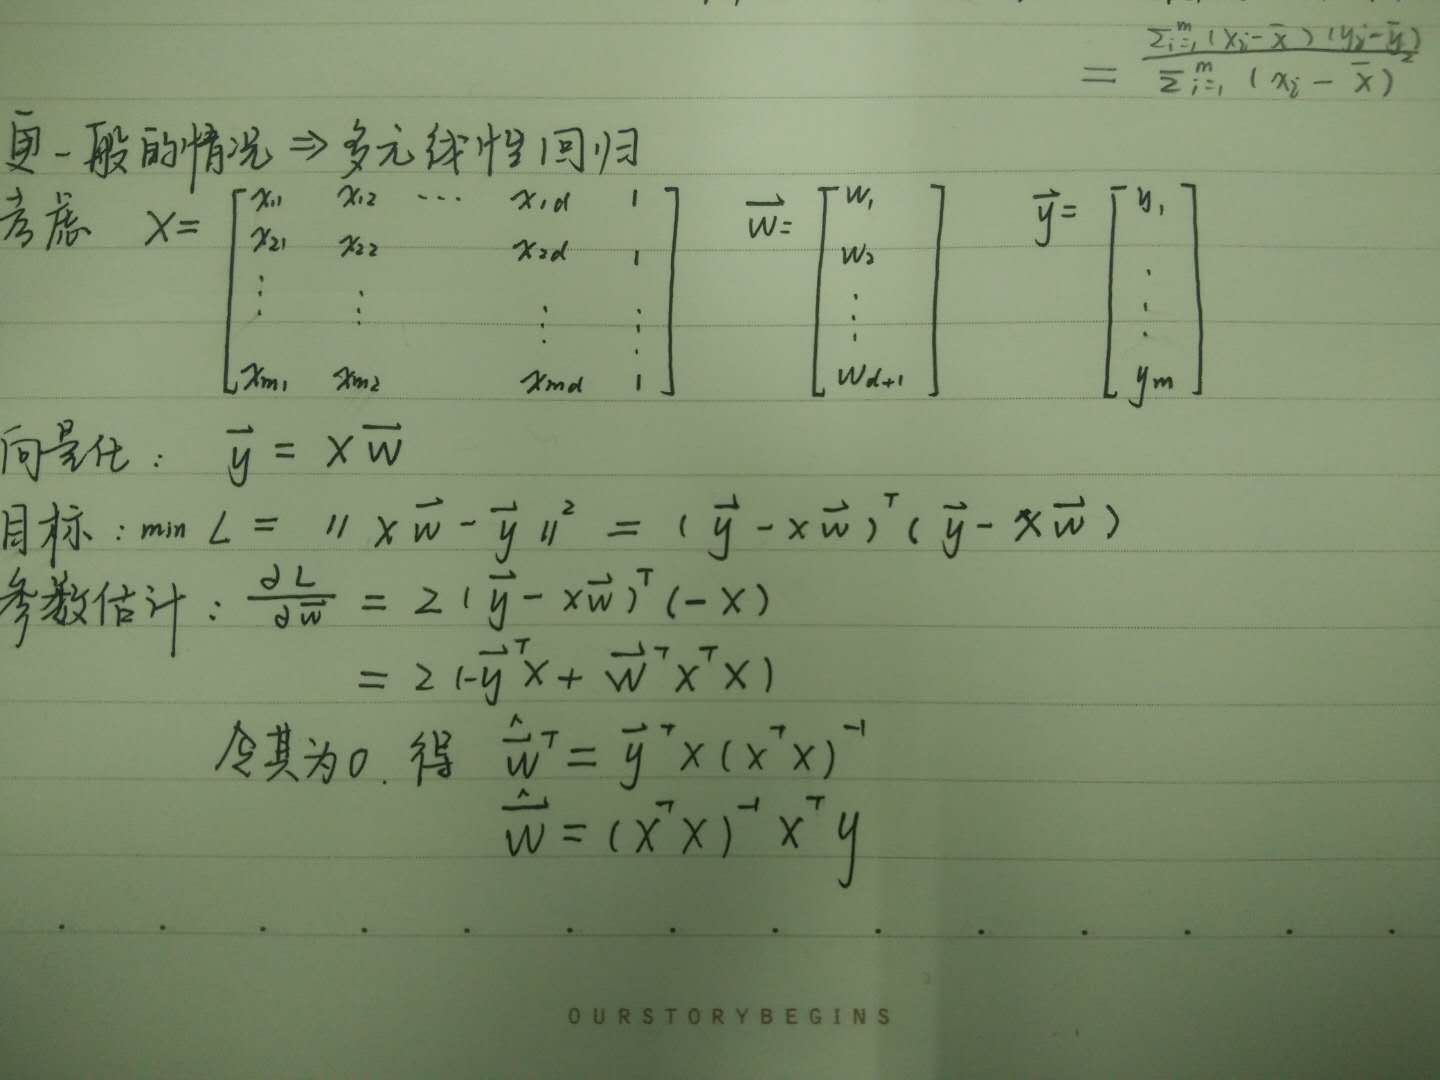 = \frac{\sum_{i=1}^{m}(x_i-\bar{x})(y_i-\bar{y})}{\sum_{i=1}^{m}(x_i-\bar{x})^2}
更一般的情况 ⇒ 多元线性回归
考虑 X = \begin{bmatrix} x_{11} & x_{12} & \cdots & x_{1d} & 1 \\ x_{21} & x_{22} & & x_{2d} & 1 \\ \vdots & \vdots & & \vdots & \vdots \\ x_{m1} & x_{m2} & & x_{md} & 1 \end{bmatrix} \vec{w} = \begin{bmatrix} w_1 \\ w_2 \\ \vdots \\ w_{d+1} \end{bmatrix} \vec{y} = \begin{bmatrix} y_1 \\ \vdots \\ y_m \end{bmatrix}
向量化: \vec{y} = X\vec{w}
目标: min L = ||X\vec{w} - \vec{y}||^2 = (\vec{y} - X\vec{w})^T(\vec{y} - X\vec{w})
参数估计: \frac{\partial L}{\partial \vec{w}} = 2(\vec{y} - X\vec{w})^T(-X)
= 2(-\vec{y}^T X + \vec{w}^T X^T X)
令其为0. 得 \hat{\vec{w}}^T = \vec{y}^T X(X^T X)^{-1}
\hat{\vec{w}} = (X^T X)^{-1} X^T y
OURSTORYBEGINS